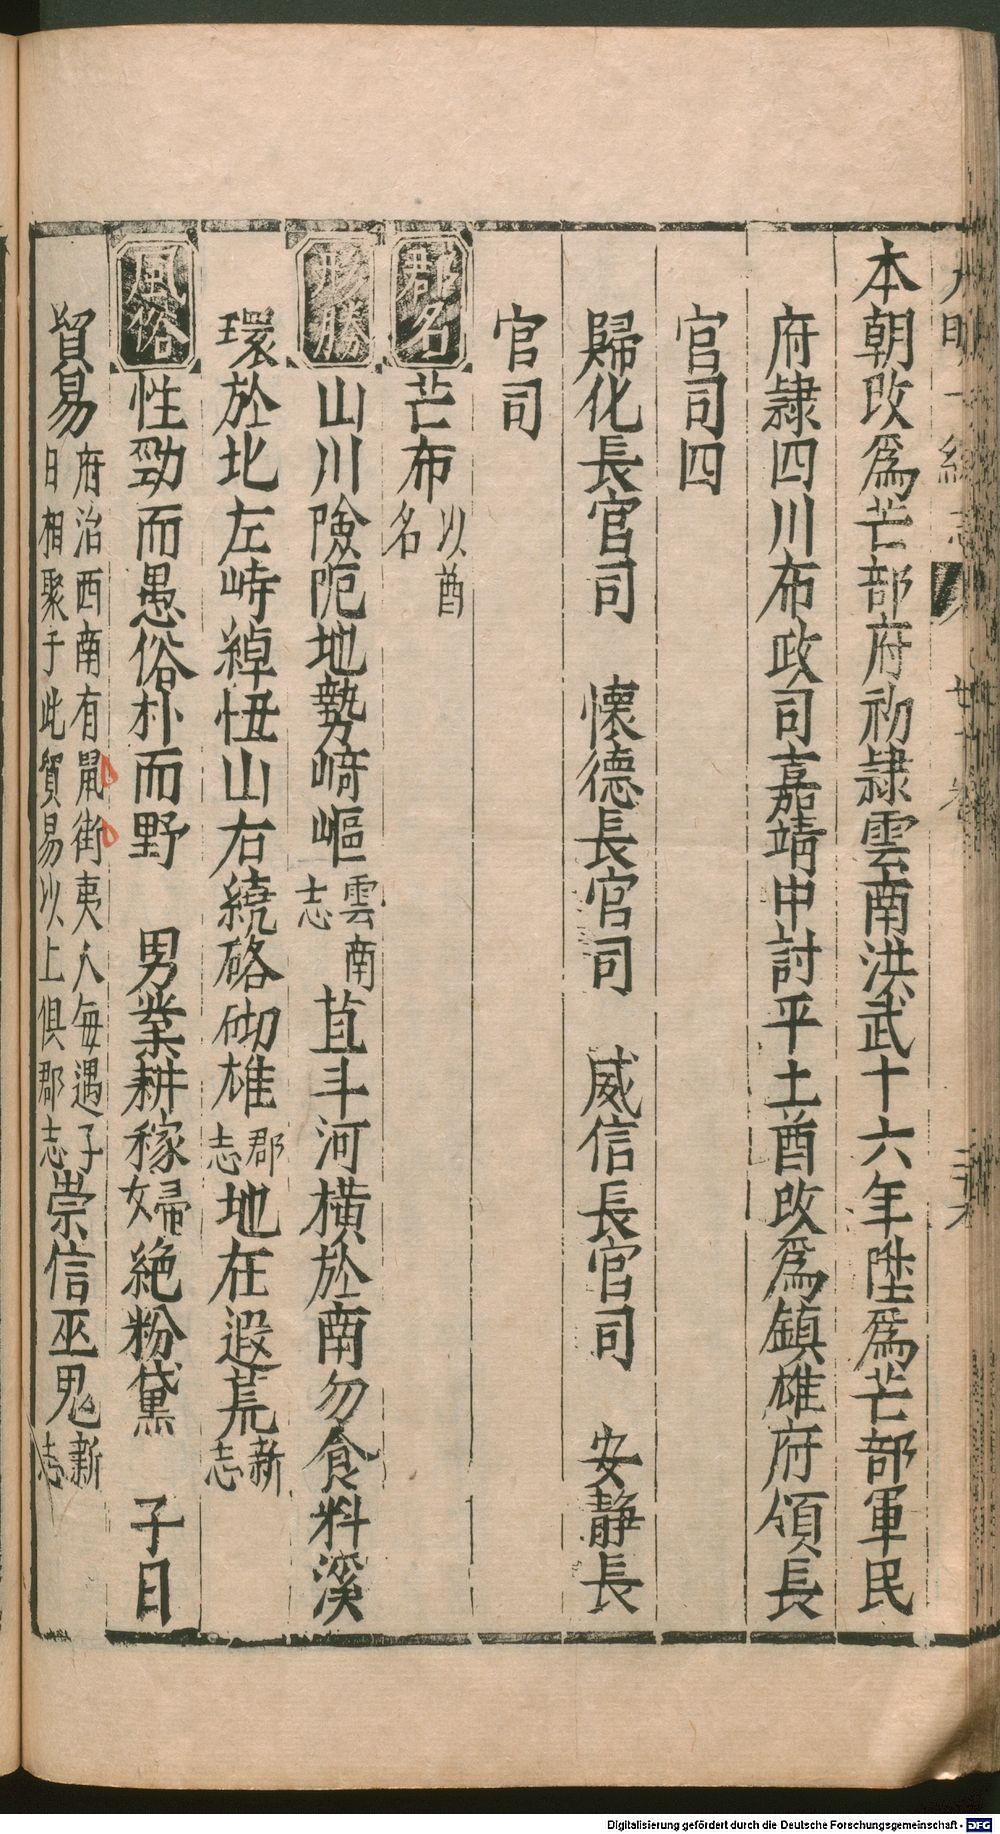 本朝改爲芒部府初隷雲南洪武十六年陞爲芒部軍民
府隷四川布政司嘉靖中討平土酋改爲鎮雄府領長
官司四
歸化長官司　懷德長官司　威信長官司　安靜長
官司
郡名 芒布 以酋名
形勝 山川險阨地勢崎嶇 雲南志 苴斗河橫於南勿食料溪
環於北左峙綽忸山右繞硌砌雄 郡志 地在遐荒 新志
風俗 性勁而愚俗朴而野　男業耕稼婦絶粉黛　子日
貿易 府治西南有鼠街夷人每遇子日相聚于此貿易以上俱郡志 崇信巫鬼 新志
Digitalisierung gefördert durch die Deutsche Forschungsgemeinschaft - DFG